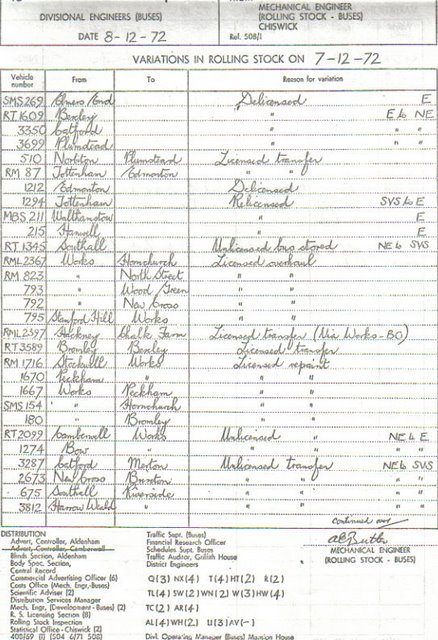 DIVISIONAL ENGINEERS (BUSES)
DATE 8-12-72
MECHANICAL ENGINEER
(ROLLING STOCK - BUSES)
CHISWICK
Ref. 508/1
VARIATIONS IN ROLLING STOCK ON 7-12-72
Vehicle number From To Reason for variation
SMS 269 Elmers End Delicensed E
RT 1609 Bexley " E to NE
3350 Catford " " "
3699 Plumstead " " "
510 Norbiton Plumstead Licensed transfer
RM 87 Tottenham Edmonton " "
1212 Edmonton Delicensed
1294 Tottenham Relicensed SVS to E
MBS 211 Walthamstow " E
215 Hanwell " E
RT 1345 Southall Unlicensed bus stored NE to SVS
RML 2367 Works Hornchurch Licensed overhaul
RM 823 " North Street " "
793 " Wood Green " "
792 " New Cross " "
795 Stamford Hill Works " "
RML 2397 Hackney Chalk Farm Licensed transfer (Via Works - BO)
RT 3589 Bromley Bexley Licensed transfer
RM 1716 Stockwell Works Licensed repaint
1670 Peckham " " "
1667 Works Peckham " "
SMS 154 " Hornchurch " "
180 " Bromley " "
RT 2099 Camberwell Works Unlicensed " NE to E
1274 Bow " " " " "
3287 Catford Merton Unlicensed transfer NE to SVS
2673 New Cross Brixton " " " "
675 Southall Riverside " " " "
3812 Harrow Weald " " " " "
Continued over
DISTRIBUTION
Advert. Controller, Aldenham
Advert. Controller, Camberwell
Blinds Section, Aldenham
Body Spec. Section,
Central Record
Commercial Advertising Officer (6)
Costs Office (Mech. Engr.-Buses)
Scientific Adviser (2)
Distribution Services Manager
Mech. Engr, (Development - Buses) (2)
R. S. Licensing Section (8)
Rolling Stock Inspection
Statistical Office - Chiswick (2)
Traffic Supt. (Buses)
Financial Research Officer
Schedules Supt. Buses
Traffic Auditor, Griffith House
District Engineers
Q(3) NX(4) T(4) HT(2) R(2)
TL(4) SW(2) WN(2) W(3) HW(4)
TC(2) AR(4)
AL(4) WH(2) U(3) AV(-)
Divl. Operating Manager (Buses) Mansion House
MECHANICAL ENGINEER
(ROLLING STOCK - BUSES)